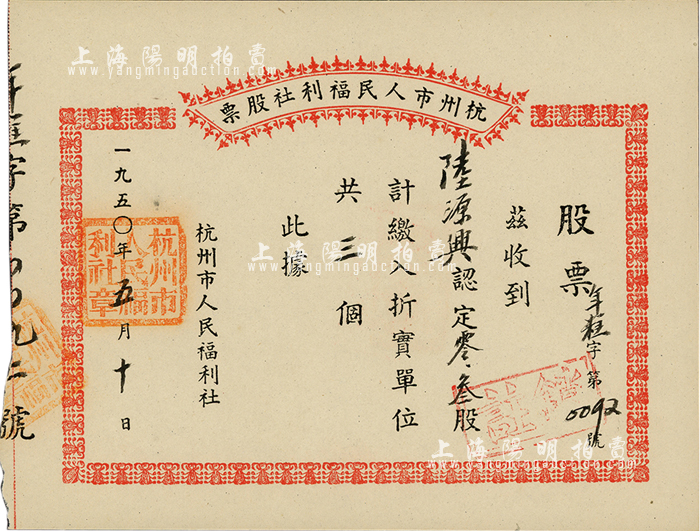 杭州市人民福利社股票
股票 年 字第0092號
茲收到
陸源興認定零·叁股
計繳人折實單位
共三個
此據
杭州市人民福利社
一九五〇年五月十日
杭州市人民福利社章
字第 九二號
上海陽明拍賣
www.yangmingauction.com
上海陽明拍賣
www.yangmingauction.com
上海陽明拍賣
www.yangmingauction.com